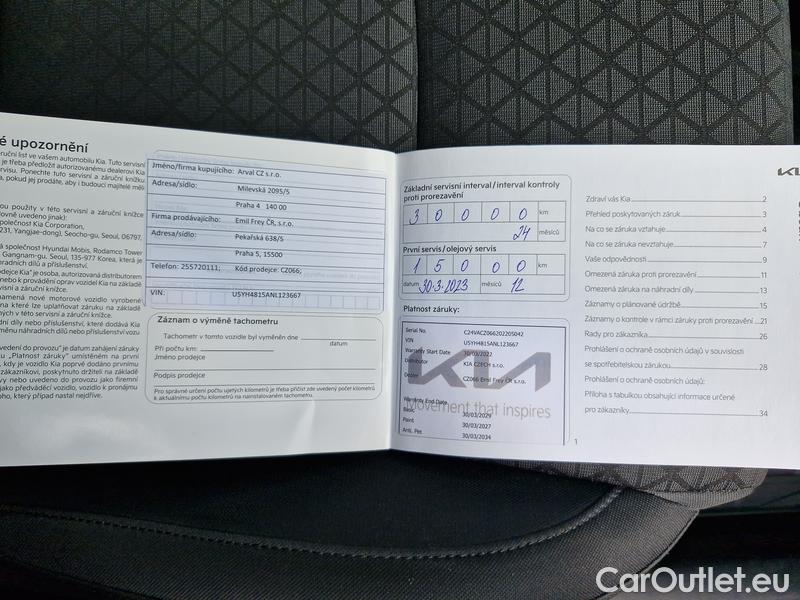 é upozornění
ruční list ve vašem automobilu Kia. Tuto servisní
je třeba předložit autorizovanému dealerovi Kia
rvisu. Ponechte tuto servisní a záruční knížku
, pokud jej prodáte, aby i budoucí majitelé měli
ou použity v této servisní a záruční knížce
ovně uvedeno jinak):
polečnost Kia Corporation,
231, Yangjae-dong), Seocho-gu, Seoul, 06797,
á společnost Hyundai Mobis, Rodamco Tower
Gangnam-gu, Seoul, 135-977 Korea, která je
hradních dílů a příslušenství.
dejce Kia" je osoba, autorizovaná distributorem
nebo k provádění oprav vozidel Kia na základě
rvisní a záruční knížce.
namená nové motorové vozidlo vyrobené
na které lze uplatňovat záruku na základě
ných v této servisní a záruční knížce.
Jméno/firma kupujícího: Arval CZ s.r.o.
Adresa/sídlo: Milevská 2095/5
Praha 4 140 00
Firma prodávajícího: Emil Frey ČR, s.r.o.
Adresa/sídlo: Pekařská 638/5
Praha 5, 15500
Telefon: 255720111; Kód prodejce: CZ066;
VIN: U5YH4815ANL123667
Záznam o výměně tachometru
Tachometr v tomto vozidle byl vyměněn dne
datum
Při počtu km:
Jméno prodejce
Podpis prodejce
Pro správné určení počtu ujetých kilometrů je třeba přičíst zde uvedený počet kilometrů
k aktuálnímu počtu kilometrů na nainstalovaném tachometru.
Základní servisní interval/interval kontroly
proti prorezavění
3 0 0 0 0 km
24 měsíců
První servis/olejový servis
1 5 0 0 0 km
datum 30.3.2023 měsíců 12
Platnost záruky:
Serial No. C24VACZ066202205042
VIN U5YH4815ANL123667
Warranty Start Date 30/03/2022
Distributor KIA CZECH s.r.o.
Dealer CZ066 Emil Frey ČR s.r.o.
KIA
Movement that inspires
Warranty End Date
Basic 30/03/2029
Paint 30/03/2027
Anti. Per. 30/03/2034
1
KIA
Zdraví vás Kia 2
Přehled poskytovaných záruk 3
Na co se záruka vztahuje 4
Na co se záruka nevztahuje 7
Vaše odpovědnosti 9
Omezená záruka proti prorezavění 11
Omezená záruka na náhradní díly 13
Záznamy o plánované údržbě 15
Záznamy o kontrole v rámci záruky proti prorezavění 21
Rady pro zákazníka 26
Prohlášení o ochraně osobních údajů v souvislosti
se spotřebitelskou zárukou 28
Prohlášení o ochraně osobních údajů:
Příloha s tabulkou obsahující informace určené
pro zákazníky 34
CarOutlet.eu